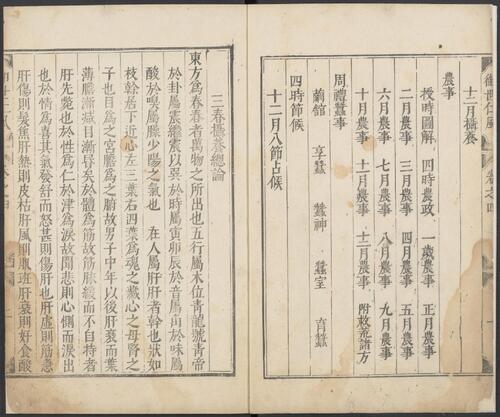 卷之四
十二月攝養
農事
授時圖解 四時農政 一歲農事 正月農事
二月農事 三月農事 四月農事 五月農事
六月農事 七月農事 八月農事 九月農事
十月農事 十一月農事 十二月農事 附救荒諸方
周禮蠶事
繭館 享蠶 蠶神 蠶室 育蠶
四時節候
十二月八節占候
三春攝養總論
東方爲春春者萬物之所出也五行屬木位青龍號青帝
於卦屬震繼震以巽於時屬寅卯辰於音屬角於味屬
酸於嗅屬臊少陽之氣也 在人屬肝肝者幹也狀如
枝幹居下近心左三葉右四葉爲魂之藏心之母腎之
子也目爲之宮膽爲之腑故男子中年以後肝衰而葉
薄膽漸減目漸昏矣於體爲筋故筋脈緩而不自持者
肝先斃也於性爲仁於津爲淚故聞悲則心惻而淚出
也於情爲喜其氣發舒而怒甚則傷肝也肝虛則筋急
肝傷則髮焦肝熱則皮枯肝風則肌班肝衰則好食酸